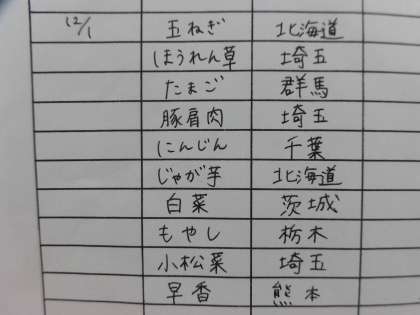 12/1 玉ねぎ 北海道
ほうれん草 埼玉
たまご 群馬
豚肩肉 埼玉
にんじん 千葉
じゃが芋 北海道
白菜 茨城
もやし 栃木
小松菜 埼玉
早香 熊本